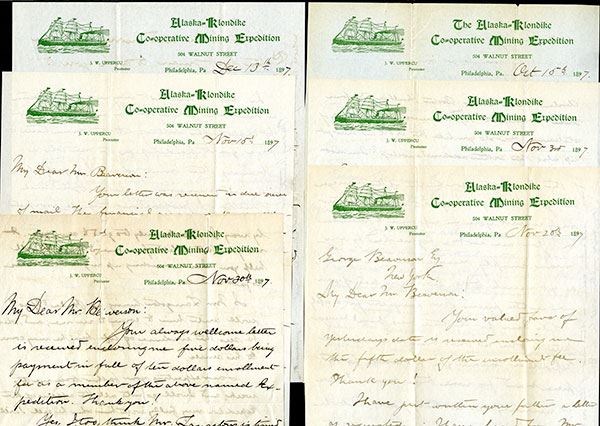 Alaska-Klondike
Co-operative Mining Expedition
504 WALNUT STREET
J. W. UPPERCU
Promoter
Philadelphia, Pa Dec 13th 1897.
Alaska-Klondike
Co-operative Mining Expedition
504 WALNUT STREET
J. W. UPPERCU
Promoter
Philadelphia, Pa Nov 15th 1897
My Dear Mr Beverson:
Your letter was received in due course
of mail. The financial
Alaska-Klondike
Co-operative Mining Expedition
504 WALNUT STREET
J. W. UPPERCU
Promoter
Philadelphia, Pa. Nov 30th 1897.
My Dear Mr. Beverson:
Your always wellcome letter
is received enclosing me five dollars being
payment in full of ten dollars enrollment
fee as a member of the above named Ex-
pedition. Thank you!
Yes, I too, think Mr.
The Alaska-Klondike
Co-operative Mining Expedition
504 WALNUT STREET
J. W. UPPERCU
Promoter
Philadelphia, Pa Oct 15th 1897.
Alaska-Klondike
Co-operative Mining Expedition
504 WALNUT STREET
J. W. UPPERCU
Promoter
Philadelphia, Pa. Nov 3rd 1897
Alaska-Klondike
Co-operative Mining Expedition
504 WALNUT STREET
J. W. UPPERCU
Promoter
Philadelphia, Pa. Nov 20th 1897
George Beverson Esq
New York
My Dear Mr Beverson!
Your valued favor of
yesterdays date is received
the fifth dollar of the enrollment fee.
Thank you!
Have just written you a letter